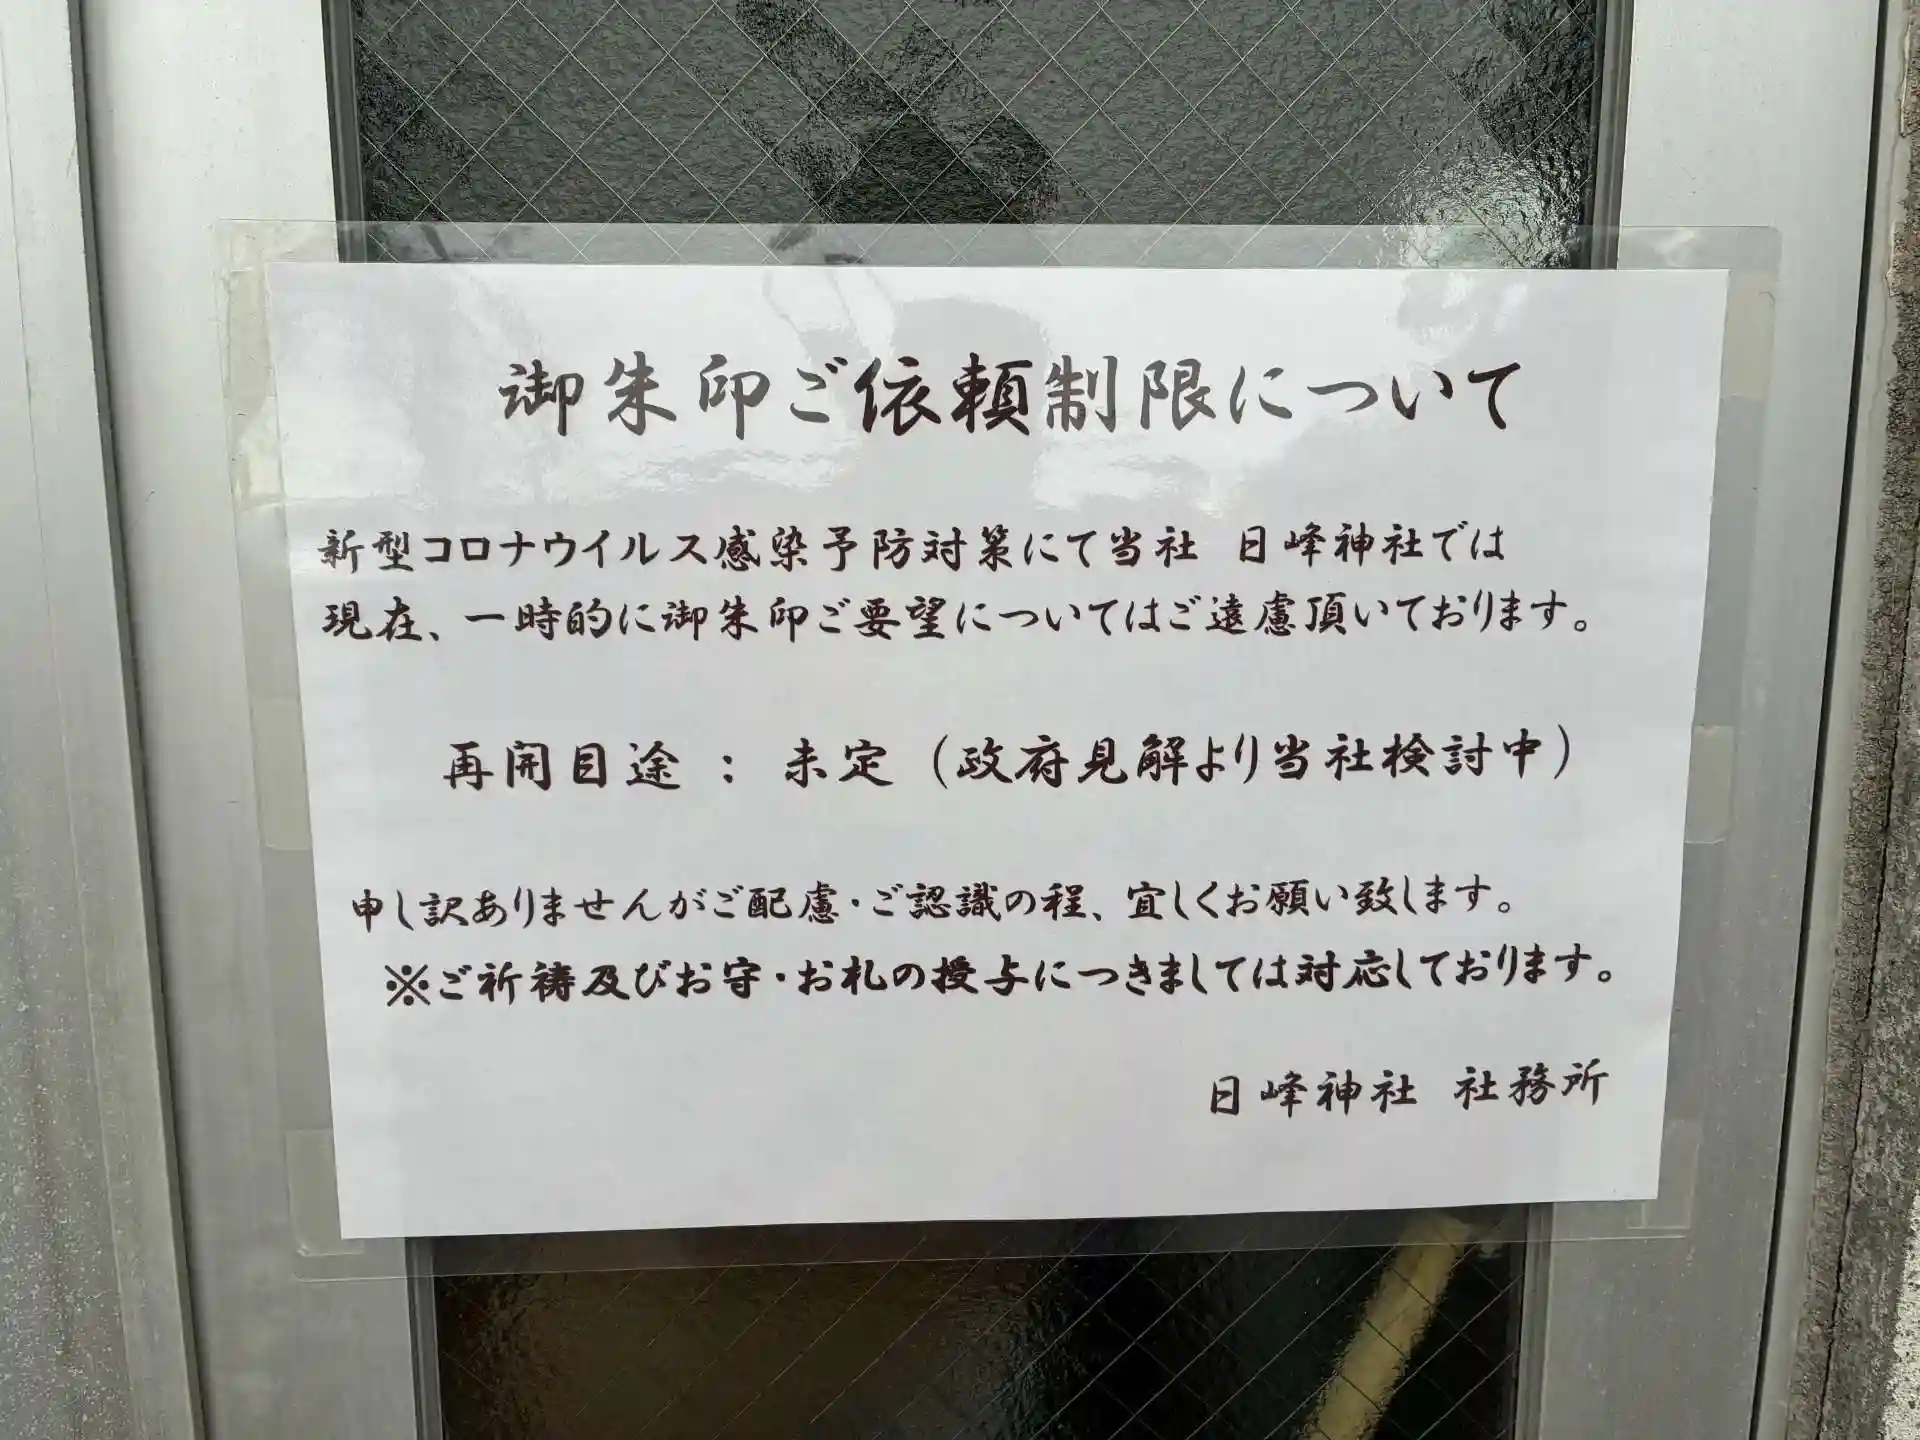 御朱印ご依頼制限について
新型コロナウイルス感染予防対策にて当社 日峰神社では
現在、一時的に御朱印ご要望についてはご遠慮頂いております。
再開目途 : 未定 (政府見解より当社検討中)
申し訳ありませんがご配慮・ご認識の程、宜しくお願い致します。
※ご祈祷及びお守・お札の授与につきましては対応しております。
日峰神社 社務所